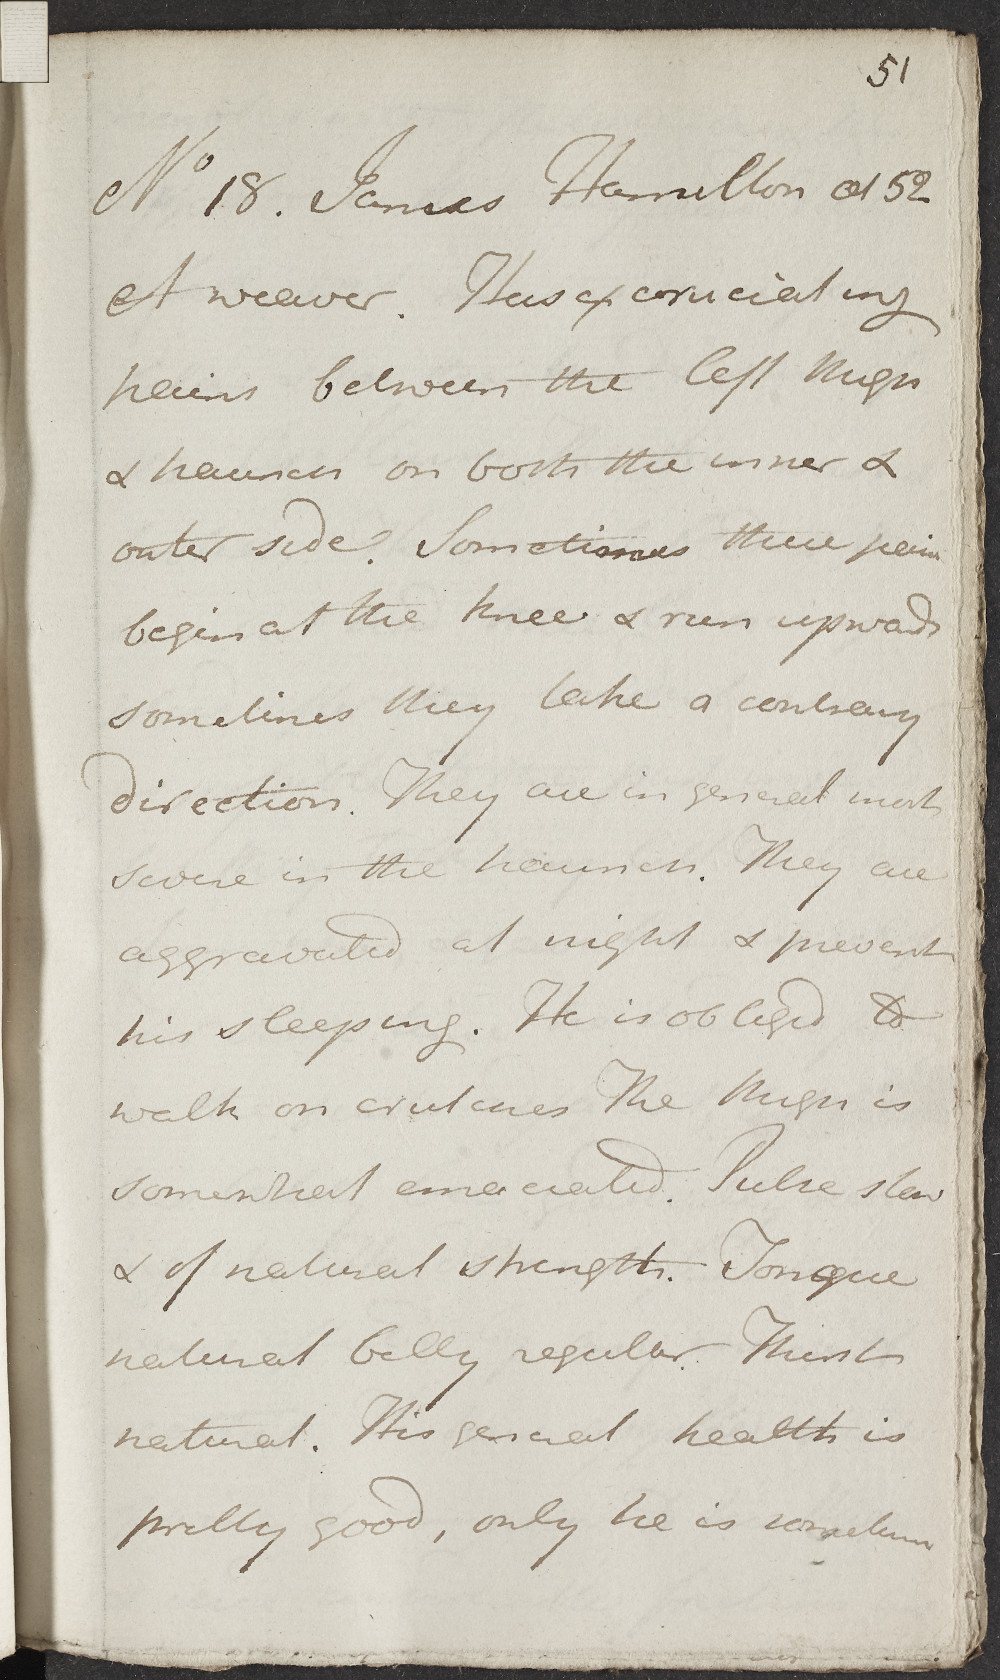 51
No 18. James Hamilton æt 52
A weaver. Has excruciating
pains between the left thigh
& haunch on both the inner &
outer side. Sometimes these pains
begin at the knee & run upwards
sometimes they take a contrary
direction. They are in general most
severe in the haunch. They are
aggravated at night & prevent
his sleeping. He is obliged to
walk on crutches The thigh is
somewhat emaciated. Pulse slow
& of natural strength. Tongue
natural belly regular. Thirst
natural. His general health is
pretty good, only he is sometimes